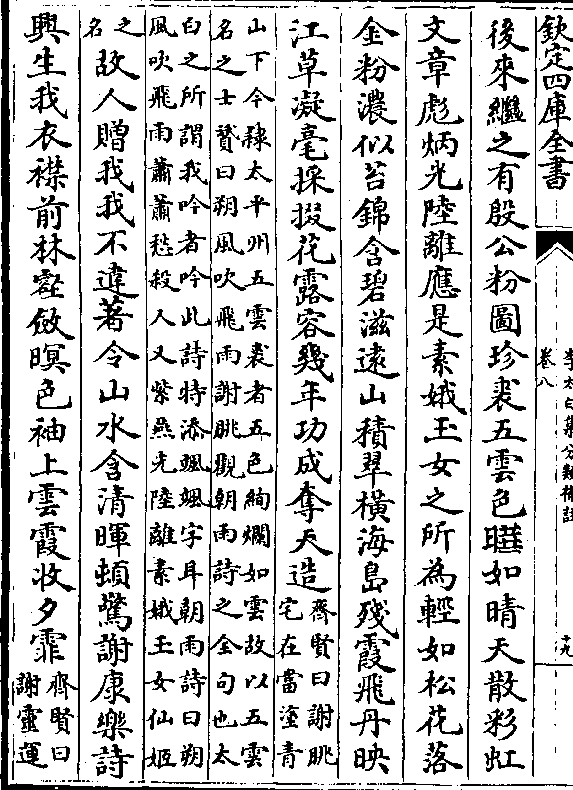 欽定四庫全書
李太白集分類補註
卷八
十九
後來繼之有殷公粉圖珍裘五雲色曄如晴天散彩虹
文章彪炳光陸離應是素娥玉女之所為輕如松花落
金粉濃似苔錦含碧滋遠山積翠橫海島殘霞飛丹映
江草凝毫採掇花露容幾年功成奪天造齊賢曰謝朓宅在當塗青
山下今隸太平州五雲裘者五色絢爛如雲故以五雲
名之士贇曰朔風吹飛雨謝朓觀朝雨詩之全句也太
白之所謂我吟者吟此詩特添颯颯字耳朝雨詩曰朔
風吹飛雨蕭蕭愁殺人又紫燕光陸離素娥玉女仙姬
之名故人贈我我不違著令山水含清暉頓驚謝康樂詩
興生我衣襟前林壑斂暝色袖上雲霞收夕霏齊賢曰謝靈運